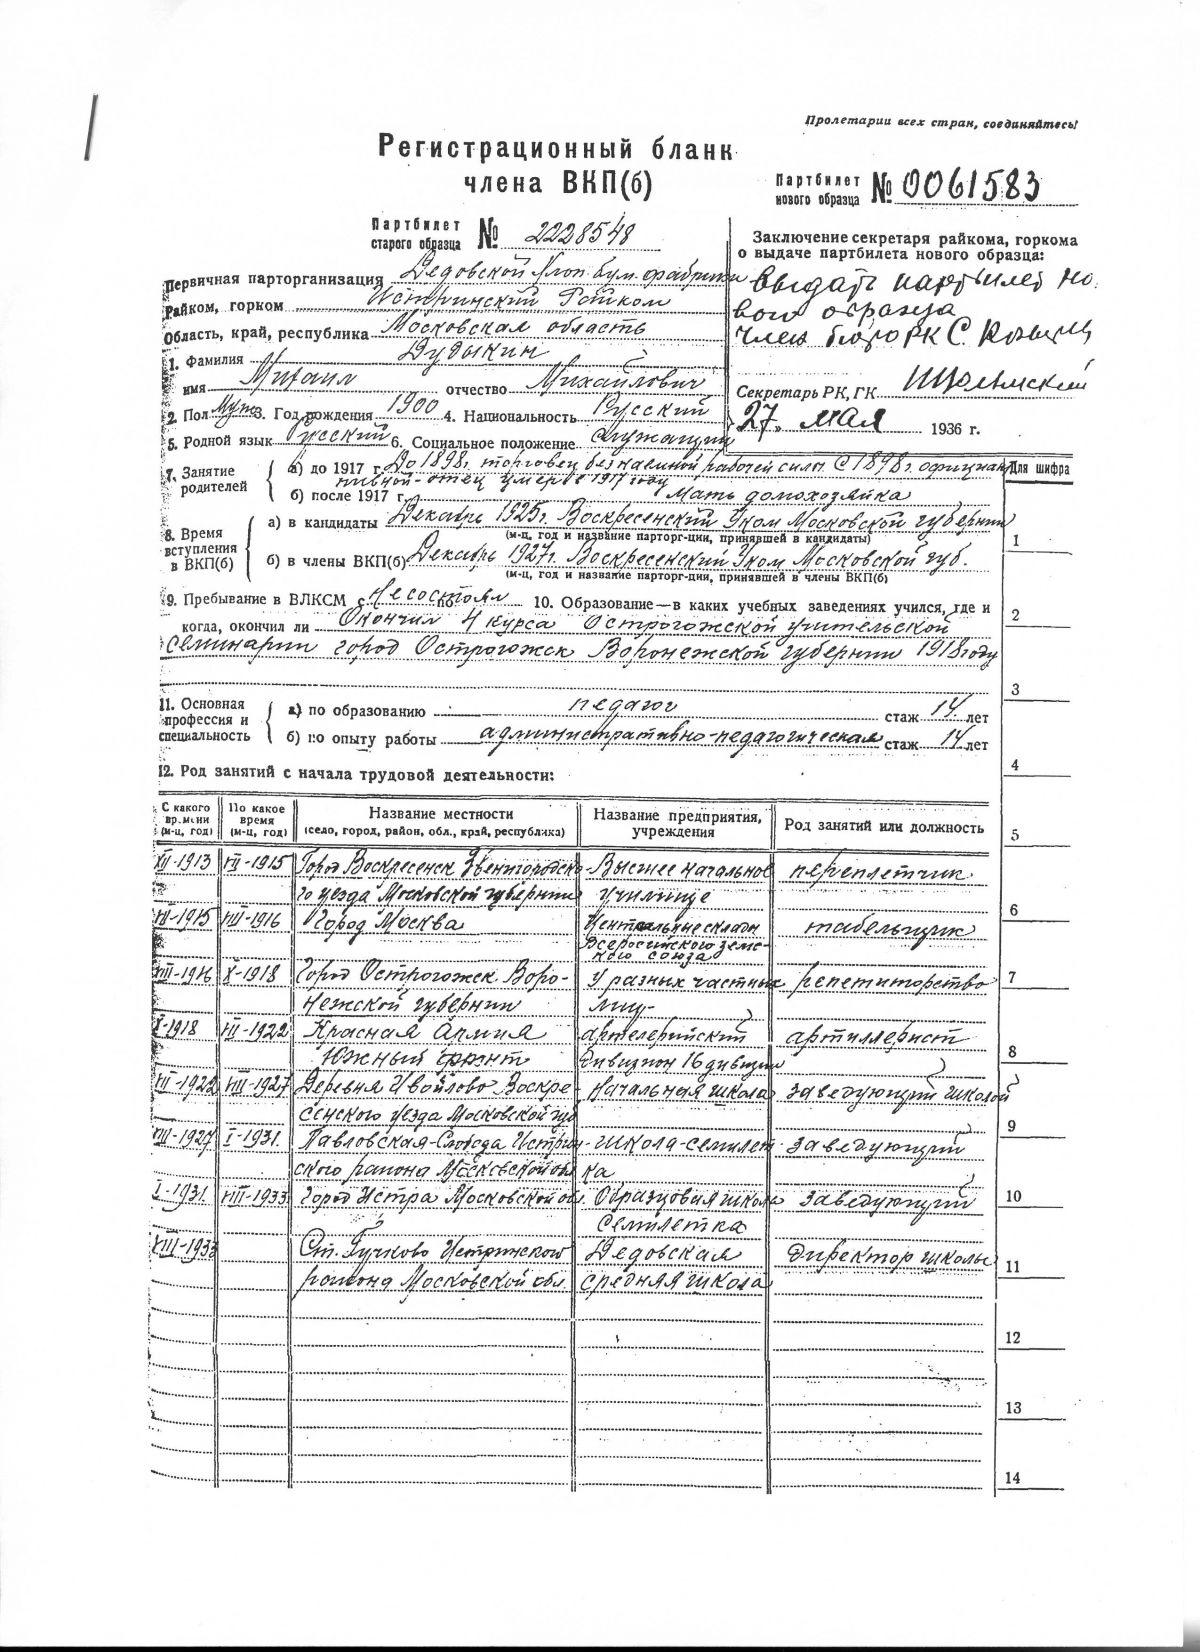 Пролетарии всех стран, соединяйтесь!
Регистрационный бланк
члена ВКП(б)
Партбилет нового образца № 0061583
Партбилет старого образца № 2228548
Заключение секретаря райкома, горкома
о выдаче партбилета нового образца:
Выдать партбилет но-
вого образца
Член бюро РК С
Секретарь РК, ГК
27. мая 1936 г.
Первичная парторганизация Дедовской Хлоп. бум. фабрики
Райком, горком Истринский Райком
Область, край, республика Московская область
1. Фамилия Дудыкин
имя Михаил отчество Михайлович
2. Пол Муж 3. Год рождения 1900 4. Национальность Русский
5. Родной язык Русский 6. Социальное положение служащий
7. Занятие родителей
а) до 1917 г. До 1898г. торговец без наемной рабочей силы. С 1898г. официант
пивной - отец умер в 1917 году
б) после 1917 г. Мать домохозяйка
8. Время вступления в ВКП(б)
а) в кандидаты Декабрь 1925г. Воскресенский Уком Московской губернии
(м-ц, год и название парторг-ции, принявшей в кандидаты)
б) в члены ВКП(б) Декабрь 1927г. Воскресенский Уком Московской губ.
(м-ц, год и название парторг-ции, принявшей в члены ВКП(б)
9. Пребывание в ВЛКСМ с Не состоял 10. Образование—в каких учебных заведениях учился, где и
когда, окончил ли Окончил 4 курса Острогожской учительской
семинарии город Острогожск Воронежской губернии 1918 году
11. Основная профессия и специальность
а) по образованию педагог стаж 14 лет
б) по опыту работы административно-педагогическая стаж 14 лет
12. Род занятий с начала трудовой деятельности:
С какого времени (м-ц, год)
По какое время (м-ц, год)
Название местности (село, город, район, обл., край, республика)
Название предприятия, учреждения
Род занятий или должность
XII-1913 VII-1915 Город Воскресенск Звенигородско- Высшее начальное переплетчик
го уезда Московской губернии училище
VII-1915 VIII-1916 Город Москва Центральные склады табельщик
Всероссийского земс-
кого союза
VIII-1916 X-1918 Город Острогожск Воро- У разных частных репетиторство
нежской губернии лиц-
X-1918 VII-1922 Красная Армия артелерийский артиллерист
Южный фронт дивизион 16 дивизии
VII-1922 VIII-1927 Деревня Ивойлово Воскре- Начальная школа заведующий школой
сенского уезда Московской губ
VIII-1927 I-1931. Павловская-Слобода Истрин- школа-семилет- заведующий
ского района Московской обл ка
I-1931. VIII-1933 Город Истра Московской обл. Образцовая школа заведующий
Семилетка
VIII-1933 Ст. Гучково Истринского Дедовская директор школы
района Московской обл. средняя школа
Для шифра
1
2
3
4
5
6
7
8
9
10
11
12
13
14